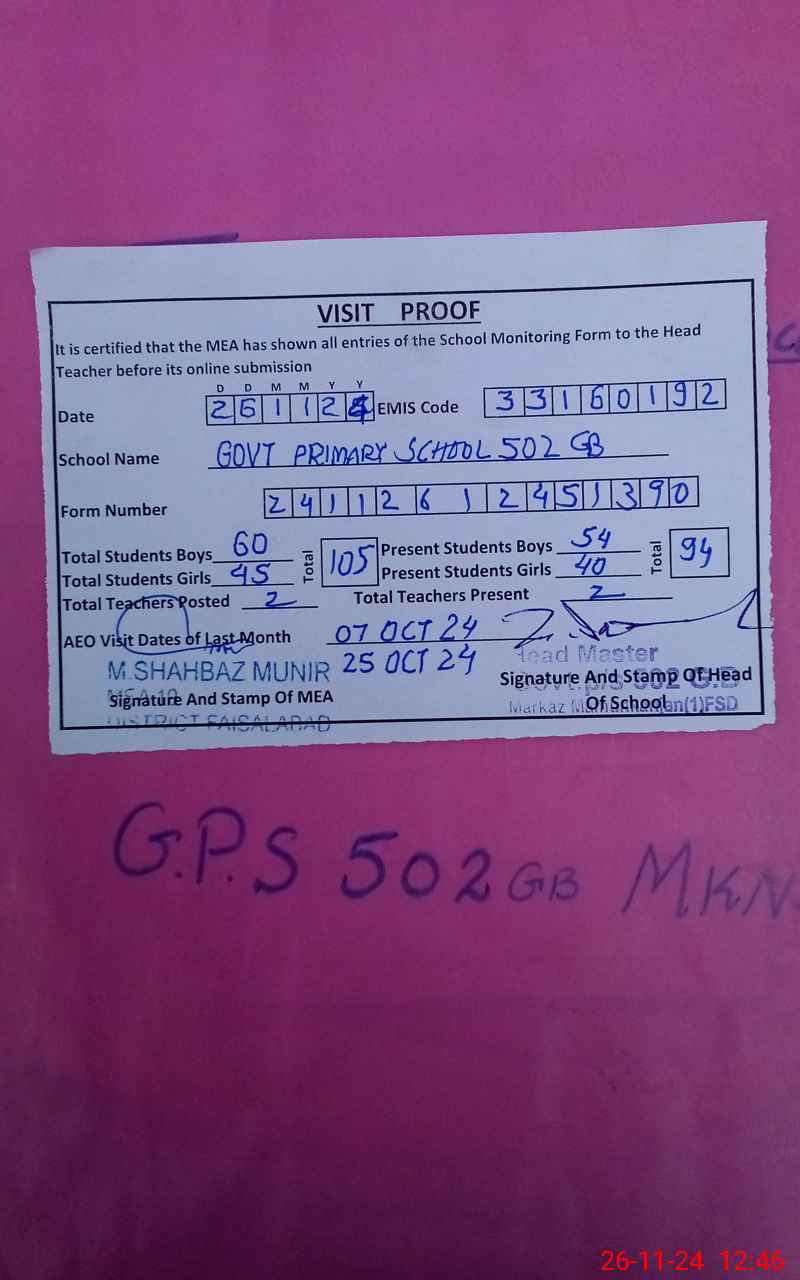 VISIT PROOF
It is certified that the MEA has shown all entries of the School Monitoring Form to the Head
Teacher before its online submission
D D M M Y Y
Date 2 6 1 1 2 4 EMIS Code 3 3 1 6 0 1 9 2
School Name GOVT PRIMARY SCHOOL 502 GB
Form Number 2 4 1 1 2 6 1 2 4 5 1 3 9 0
Total Students Boys 60 Total 105 Present Students Boys 54 Total 94
Total Students Girls 45 Present Students Girls 40
Total Teachers Posted 2 Total Teachers Present 2
AEO Visit Dates of Last Month 07 OCT 24
M.SHAHBAZ MUNIR 25 OCT 24 Head Master
Signature And Stamp Of MEA Signature And Stamp Of Head
Of School
DISTRICT FAISALABAD Markaz
G.P.S 502 GB MKN
26-11-24 12:46